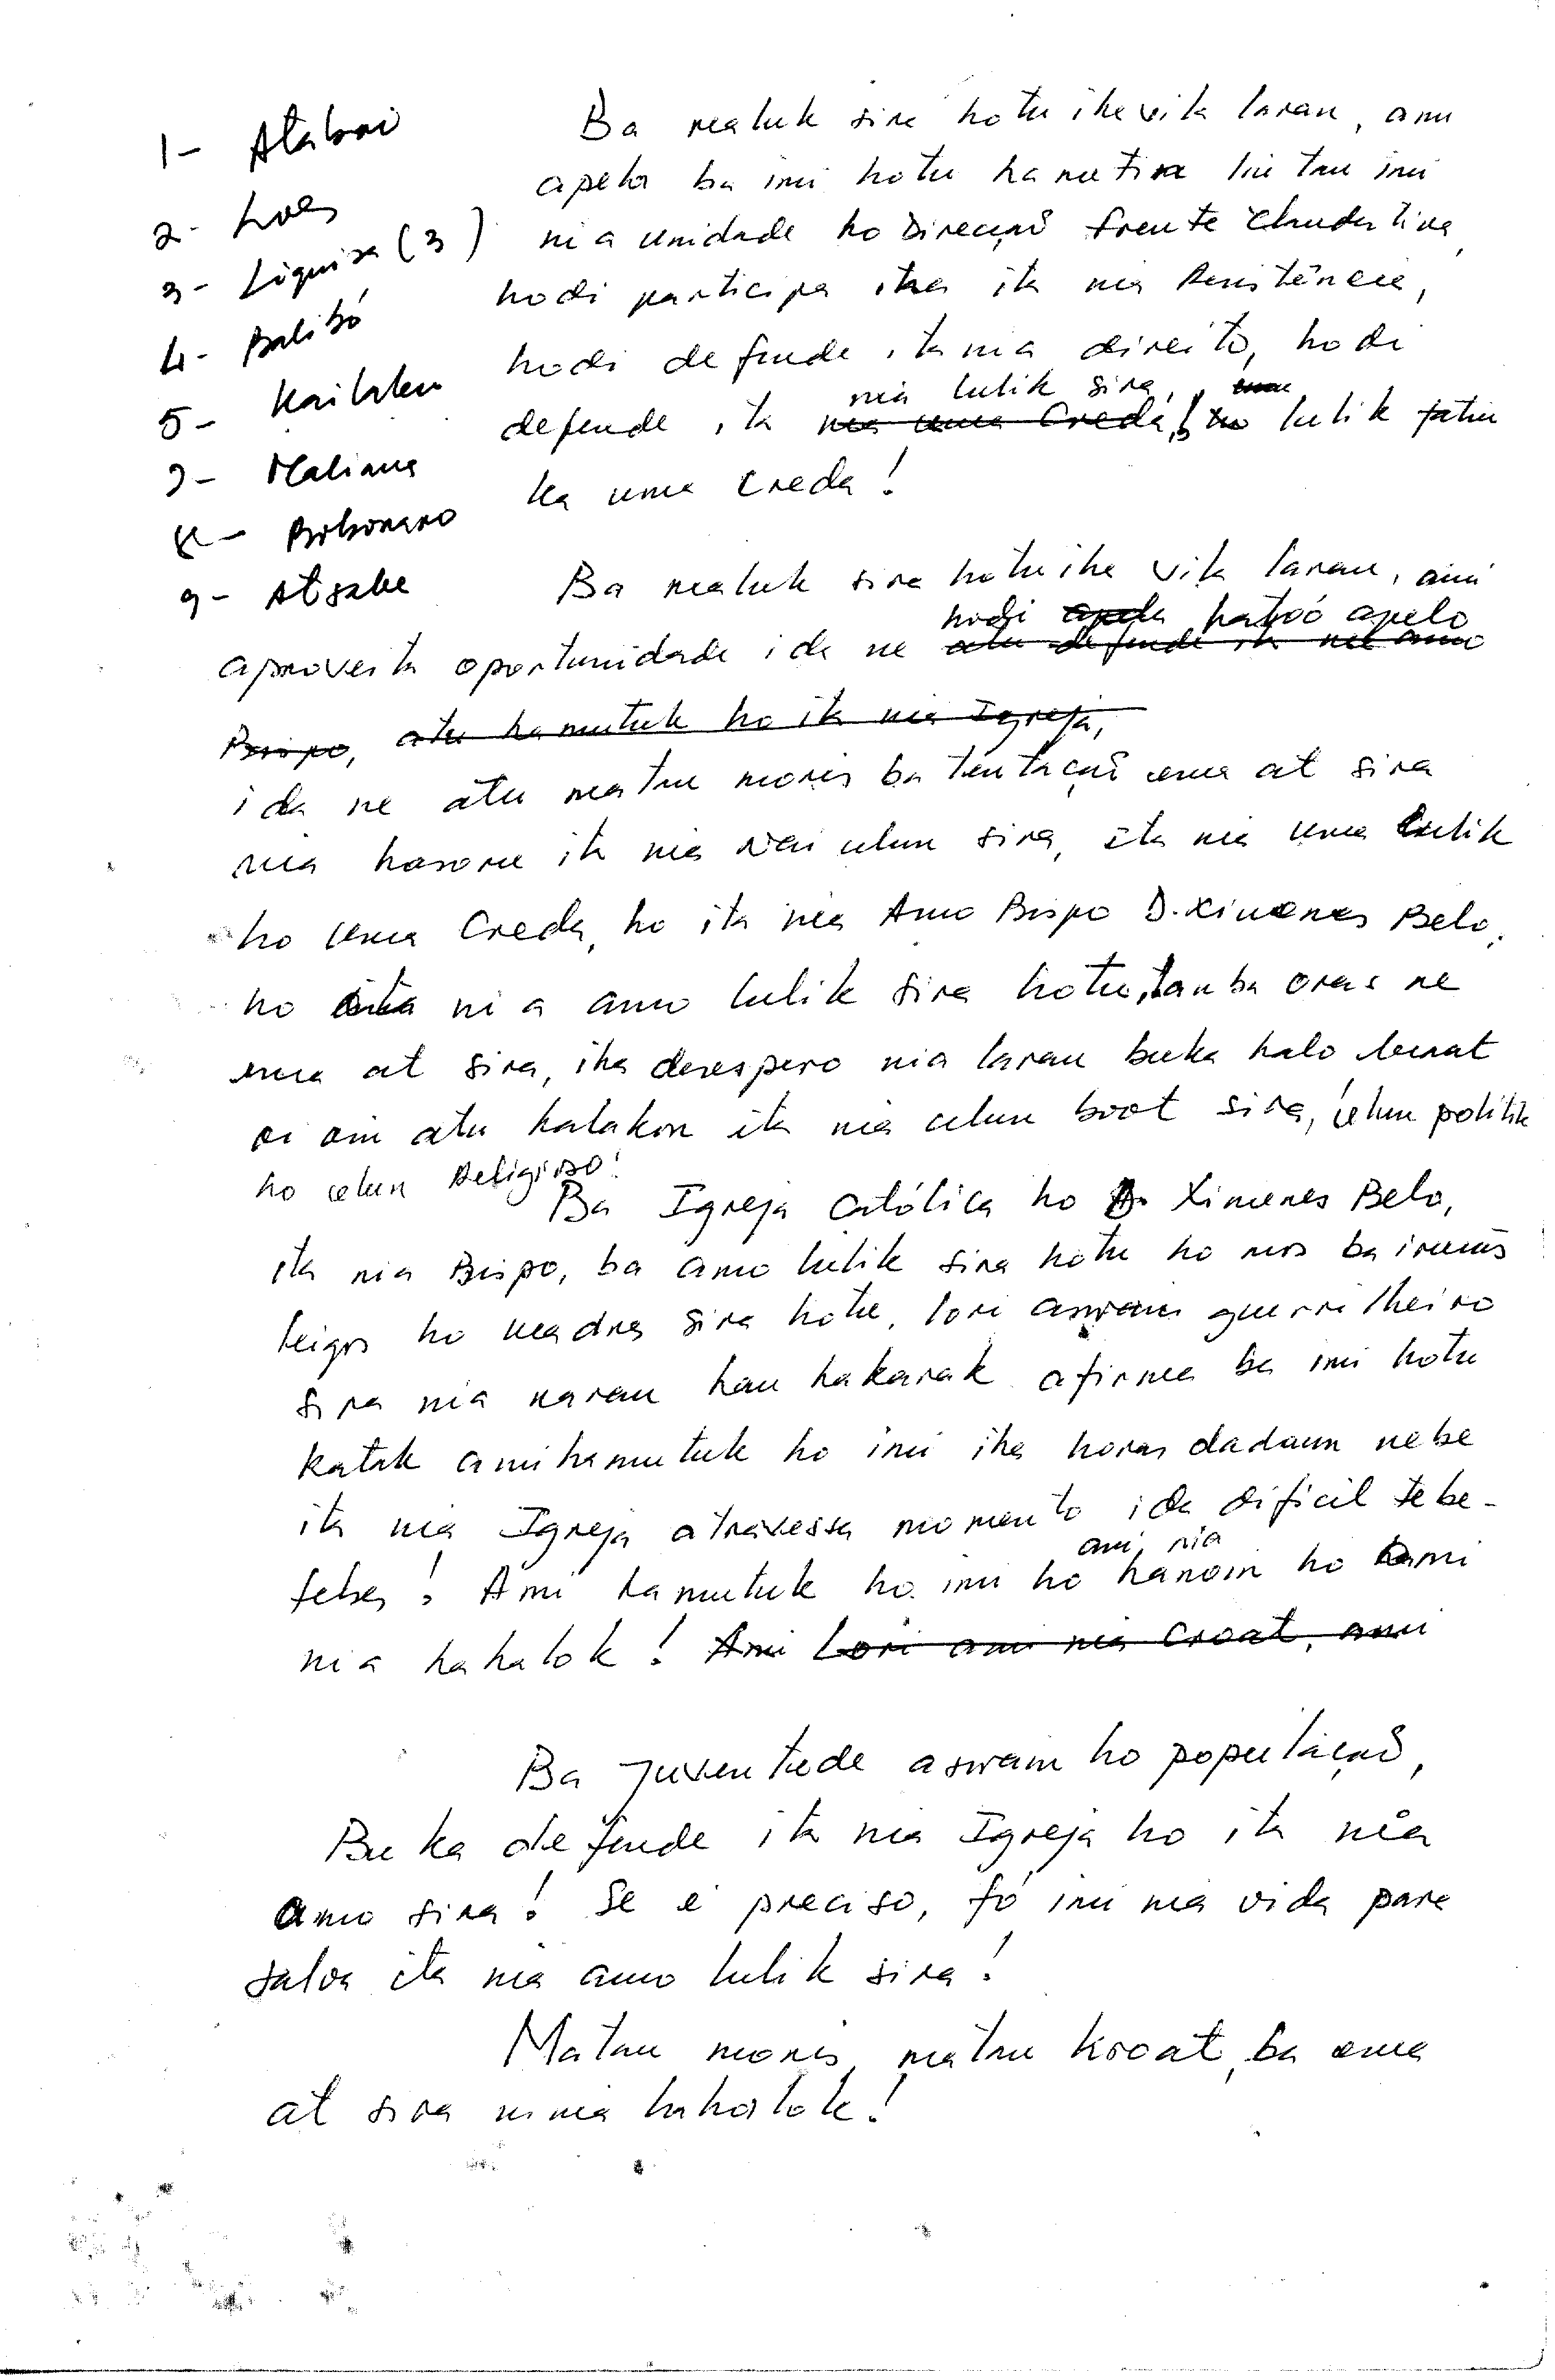 1- Atabai
2- Loes
3- Liquisa (3)
4- Balibó
5- Kailaku
7- Maliana
8- Bobonaro
9- Atsabe
Ba maluk sira hotu iha vila laran, ami
apelo ba imi hotu hametin liu tan imi
nia unidade ho Direcção frente Clandestina,
hodi participa iha ita nia Resistência,
hodi defende ita nia direito, hodi
nia lulik sira,
defende ita nia uma Creda, ho lulik fatin
ka uma Creda!
Ba maluk sira hotu iha vila laran, ami
hodi apelo hatoó apelo
aproveita oportunidade ida ne atu defende ita nia amo
Bispo, atu hamutuk ho ita nia Igreja,
ida ne atu matan moris ba tentação ema at sira
nia hasoru ita nia Nai ulun sira, ita nia Uma Lulik
ho Uma Creda, ho ita nia Amo Bispo D. Ximenes Belo,
ho ita nia amo lulik sira hotu, tanba oras ne
ema at sira, iha desespero nia laran buka halo buat
oi oin atu halakon ita nia ulun boot sira, ulun politik
ho ulun Religioso!
Ba Igreja Católica ho D. Ximenes Belo,
ita nia Bispo, ba amo lulik sira hotu ho mos ba irmãs
leigos ho madres sira hotu, lori aswain guerrilheiro
sira nia naran hau hakarak afirma ba imi hotu
katak ami hamutuk ho imi iha horas dadaun nebe
ita nia Igreja atravessa momento ida dificil tebe-
ami nia
tebes! Ami hamutuk ho imi ho hanoin ho ami
nia hahalok! Ami lori ami nia croat, ami
Ba Juventude aswain ho população,
Buka defende ita nia Igreja ho ita nia
amo sira! Se é preciso, fó imi nia vida para
salva ita nia amo lulik sira!
Matan moris, matan kroat, ba ema
at sira nia hahalok!